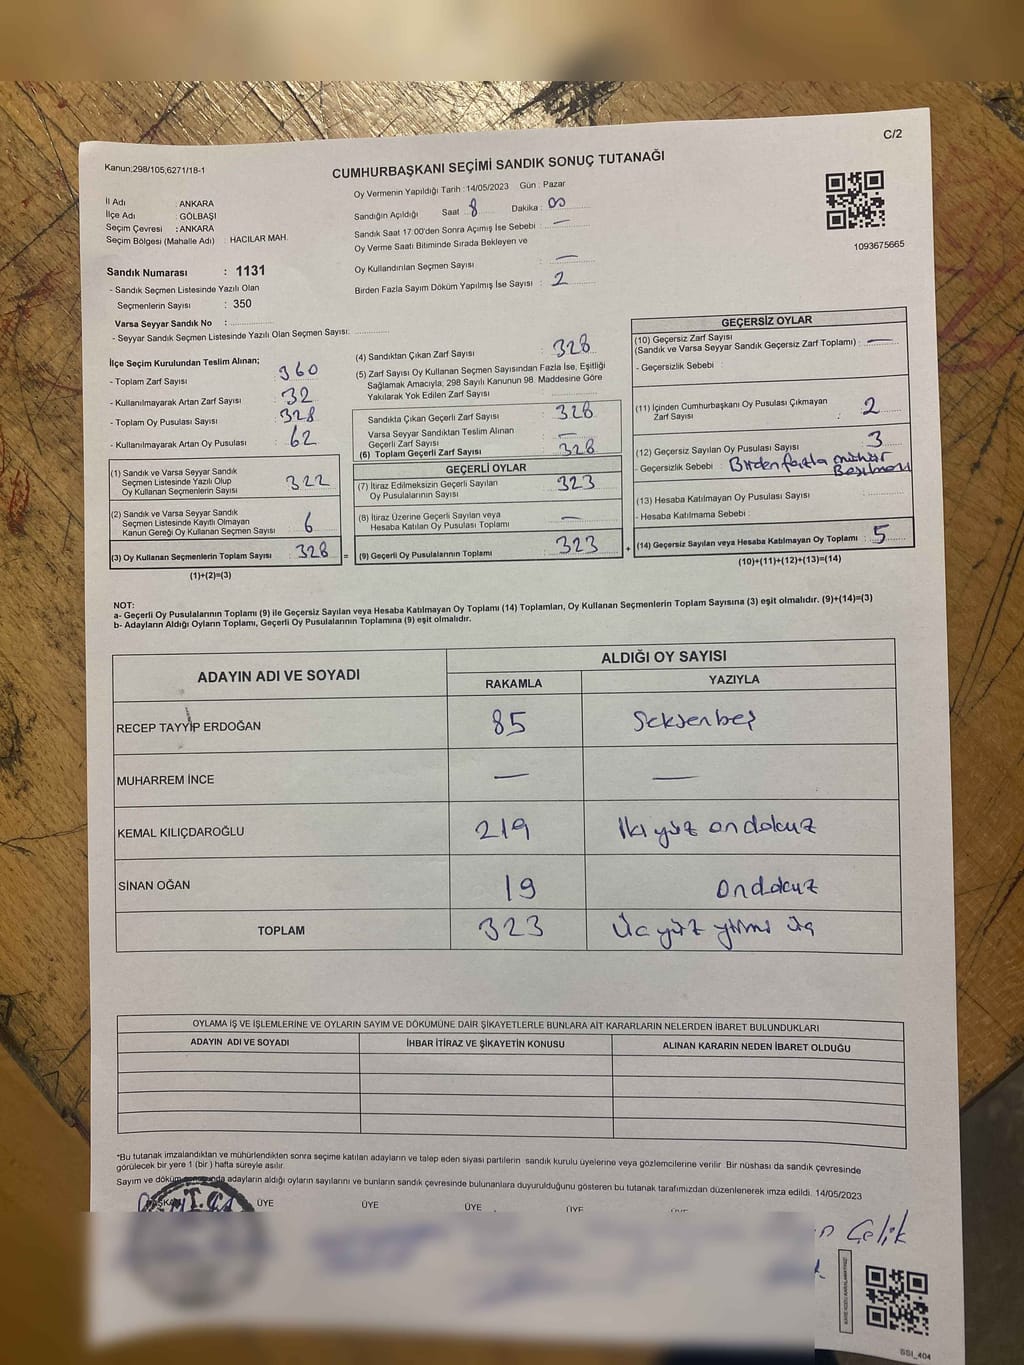 C/2
Kanun;298/105;6271/18-1
CUMHURBAŞKANI SEÇİMİ SANDIK SONUÇ TUTANAĞI
Oy Vermenin Yapıldığı Tarih : 14/05/2023 Gün : Pazar
İl Adı : ANKARA
İlçe Adı : GÖLBAŞI
Seçim Çevresi : ANKARA
Seçim Bölgesi (Mahalle Adı) : HACILAR MAH.
Sandığın Açıldığı Saat 8 Dakika : 00
Sandık Saat 17:00'den Sonra Açımış İse Sebebi : —
Oy Verme Saati Bitiminde Sırada Bekleyen ve
Oy Kullandırılan Seçmen Sayısı : —
Birden Fazla Sayım Döküm Yapılmış İse Sayısı : 2
1093675665
Sandık Numarası : 1131
- Sandık Seçmen Listesinde Yazılı Olan
Seçmenlerin Sayısı : 350
Varsa Seyyar Sandık No :
- Seyyar Sandık Seçmen Listesinde Yazılı Olan Seçmen Sayısı:
İlçe Seçim Kurulundan Teslim Alınan;
- Toplam Zarf Sayısı : 360
- Kullanılmayarak Artan Zarf Sayısı : 32
- Toplam Oy Pusulası Sayısı : 328
- Kullanılmayarak Artan Oy Pusulası : 62
(1) Sandık ve Varsa Seyyar Sandık
Seçmen Listesinde Yazılı Olup
Oy Kullanan Seçmenlerin Sayısı : 322
(2) Sandık ve Varsa Seyyar Sandık
Seçmen Listesinde Kayıtlı Olmayan
Kanun Gereği Oy Kullanan Seçmen Sayısı : 6
(3) Oy Kullanan Seçmenlerin Toplam Sayısı : 328 =
(1)+(2)=(3)
(4) Sandıktan Çıkan Zarf Sayısı : 328
(5) Zarf Sayısı Oy Kullanan Seçmen Sayısından Fazla İse, Eşitliği
Sağlamak Amacıyla; 298 Sayılı Kanunun 98. Maddesine Göre
Yakılarak Yok Edilen Zarf Sayısı :
Sandıkta Çıkan Geçerli Zarf Sayısı : 328
Varsa Seyyar Sandıktan Teslim Alınan
Geçerli Zarf Sayısı : —
(6) Toplam Geçerli Zarf Sayısı : 328
GEÇERLİ OYLAR
(7) İtiraz Edilmeksizin Geçerli Sayılan
Oy Pusulalarının Sayısı : 323
(8) İtiraz Üzerine Geçerli Sayılan veya
Hesaba Katılan Oy Pusulası Toplamı : —
(9) Geçerli Oy Pusulalarının Toplamı : 323 +
GEÇERSİZ OYLAR
(10) Geçersiz Zarf Sayısı
(Sandık ve Varsa Seyyar Sandık Geçersiz Zarf Toplamı) : —
- Geçersizlik Sebebi :
(11) İçinden Cumhurbaşkanı Oy Pusulası Çıkmayan
Zarf Sayısı : 2
(12) Geçersiz Sayılan Oy Pusulası Sayısı : 3
- Geçersizlik Sebebi : Birden fazla mühür
Basılması
(13) Hesaba Katılmayan Oy Pusulası Sayısı :
- Hesaba Katılmama Sebebi :
(14) Geçersiz Sayılan veya Hesaba Katılmayan Oy Toplamı : 5
(10)+(11)+(12)+(13)=(14)
NOT:
a- Geçerli Oy Pusulalarının Toplamı (9) ile Geçersiz Sayılan veya Hesaba Katılmayan Oy Toplamı (14) Toplamları, Oy Kullanan Seçmenlerin Toplam Sayısına (3) eşit olmalıdır. (9)+(14)=(3)
b- Adayların Aldığı Oyların Toplamı, Geçerli Oy Pusulalarının Toplamına (9) eşit olmalıdır.
ADAYIN ADI VE SOYADI ALDIĞI OY SAYISI
RAKAMLA YAZIYLA
RECEP TAYYİP ERDOĞAN 85 Seksenbeş
MUHARREM İNCE — —
KEMAL KILIÇDAROĞLU 219 İki yüz ondokuz
SİNAN OĞAN 19 Ondokuz
TOPLAM 323 Üç yüz yirmi üç
OYLAMA İŞ VE İŞLEMLERİNE VE OYLARIN SAYIM VE DÖKÜMÜNE DAİR ŞİKAYETLERLE BUNLARA AİT KARARLARIN NELERDEN İBARET BULUNDUKLARI
ADAYIN ADI VE SOYADI İHBAR İTİRAZ VE ŞİKAYETİN KONUSU ALINAN KARARIN NEDEN İBARET OLDUĞU
*Bu tutanak imzalandıktan ve mühürlendikten sonra seçime katılan adayların ve talep eden siyasi partilerin sandık kurulu üyelerine veya gözlemcilerine verilir. Bir nüshası da sandık çevresinde
görülecek bir yere 1 (bir) hafta süreyle asılır.
Sayım ve döküm sonunda adayların aldığı oyların sayılarını ve bunların sandık çevresinde bulunanlara duyurulduğunu gösteren bu tutanak tarafımızdan düzenlenerek imza edildi. 14/05/2023
BAŞKAN ÜYE ÜYE ÜYE ÜYE ÜYE
T.C.
Çelik
SSI_404